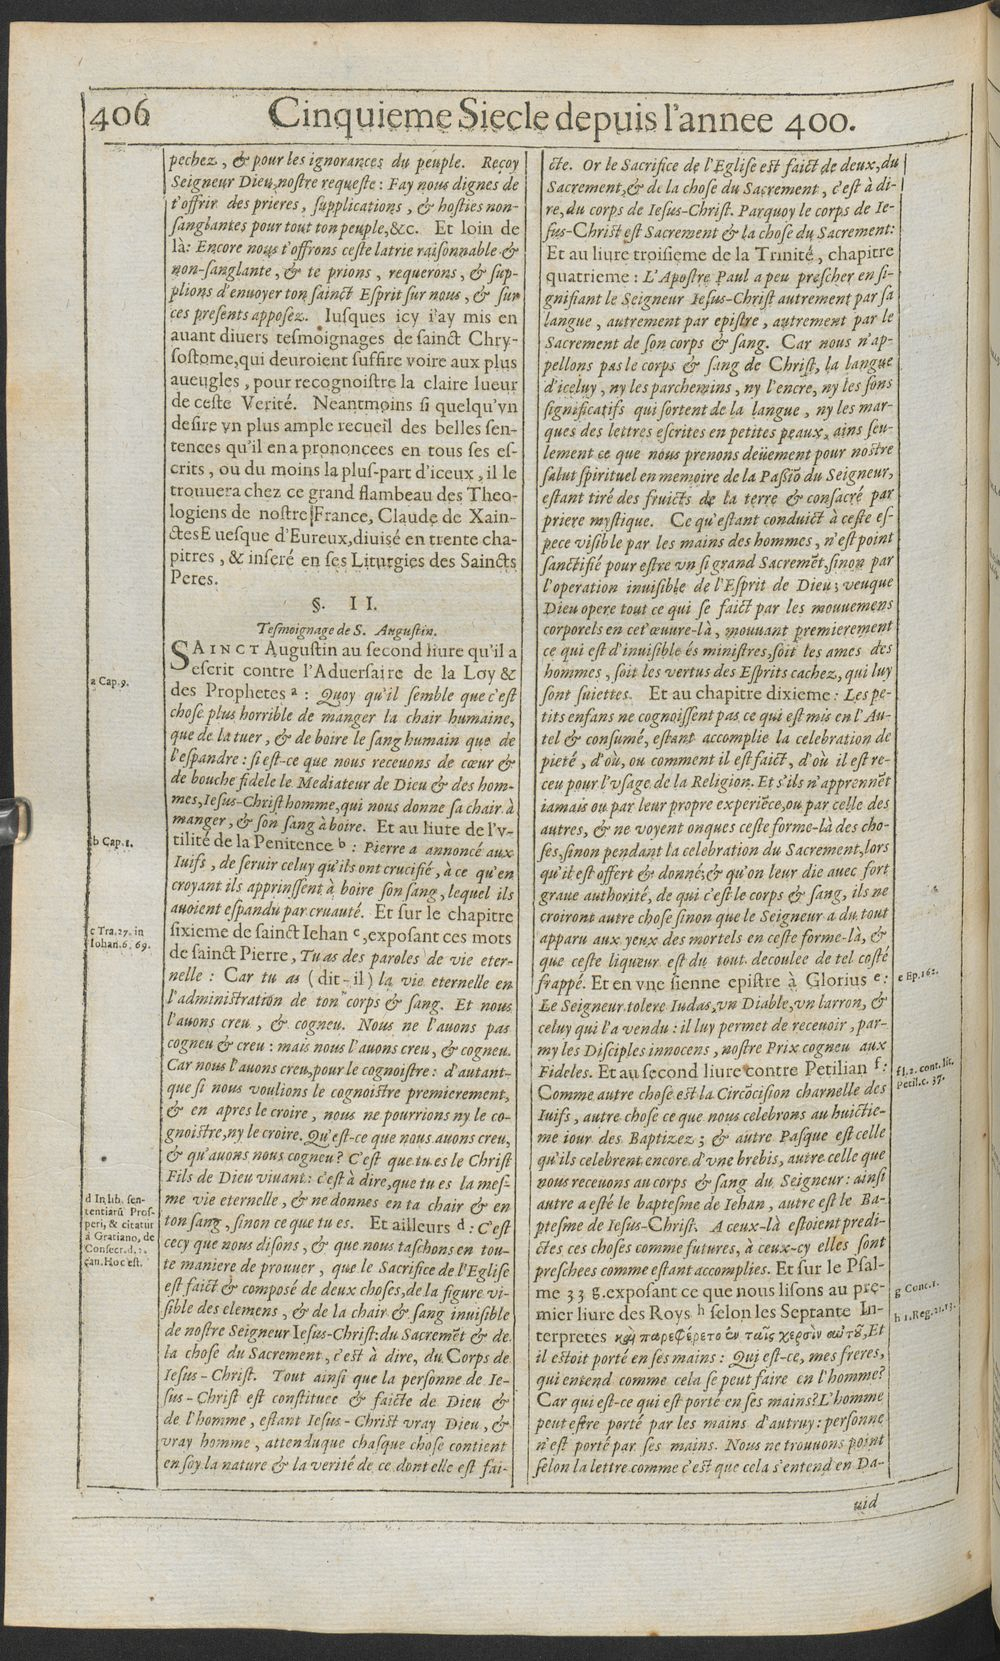 406
Cinquieme Siecle depuis l'annee 400.
pechez, & pour les ignorances du peuple. Reçoy
Seigneur Dieu, nostre requeste : Fay nous dignes de
t'offrir des prieres, supplications, & hosties non-
sanglantes pour tout ton peuple, &c. Et loin de
là : Encore nous t'offrons ceste latrie raisonnable &
non-sanglante, & te prions, requerons, & sup-
plions d'envoyer ton sainct Esprit sur nous, & sur
ces presents apposez. Iusques icy i'ay mis en
auant diuers tesmoignages de sainct Chry-
sostome, qui deuroient suffire voire aux plus
aueugles, pour recognoistre la claire lueur
de ceste Verité. Neantmoins si quelqu'vn
desire vn plus ample recueil des belles sen-
tences qu'il en a prononcees en tous ses es-
crits, ou du moins la plus-part d'iceux, il le
trouuera chez ce grand flambeau des Theo-
logiens de nostre France, Claude de Xain-
ctes Euesque d'Eureux, diuisé en trente cha-
pitres, & inseré en ses Liturgies des Saincts
Peres.
§. II.
Tesmoignage de S. Augustin.
SAINCT Augustin au second liure qu'il a
escrit contre l'Aduersaire de la Loy &
des Prophetes a : Quoy qu'il semble que c'est
chose plus horrible de manger la chair humaine,
que de la tuer, & de boire le sang humain que de
l'espandre : si est-ce que nous receuons de cœur &
de bouche fidele le Mediateur de Dieu & des hom-
mes, Iesus-Christ homme, qui nous donne sa chair à
manger, & son sang à boire. Et au liure de l'v-
tilité de la Penitence b : Pierre a annoncé aux
Iuifs, de seruir celuy qu'ils ont crucifié, à ce qu'en
croyant ils apprinssent à boire son sang, lequel ils
auoient espandu par cruauté. Et sur le chapitre
sixieme de sainct Iehan c, exposant ces mots
de sainct Pierre, Tu as des paroles de vie eter-
nelle : Car tu as (dit-il) la vie eternelle en
l'administration de ton corps & sang. Et nous
l'auons creu, & cogneu. Nous ne l'auons pas
cogneu & creu : mais nous l'auons creu, & cogneu.
Car nous l'auons creu, pour le cognoistre : d'autant-
que si nous voulions le cognoistre premierement,
& en apres le croire, nous ne pourrions ny le co-
gnoistre, ny le croire. Qu'est-ce que nous auons creu,
& qu'auons nous cogneu ? C'est que tu es le Christ
Fils de Dieu viuant : c'est à dire, que tu es la mes-
me vie eternelle, & ne donnes en ta chair & en
ton sang, sinon ce que tu es. Et ailleurs d : C'est
cecy que nous disons, & que nous taschons en tou-
te maniere de prouuer, que le Sacrifice de l'Eglise
est faict & composé de deux choses, de la figure vi-
sible des elemens, & de la chair & sang inuisible
de nostre Seigneur Iesus-Christ : du Sacremēt & de
la chose du Sacrement, c'est à dire, du Corps de
Iesus-Christ. Tout ainsi que la personne de Ie-
sus-Christ est constituee & faicte de Dieu &
de l'homme, estant Iesus-Christ vray Dieu, &
vray homme, attenduque chasque chose contient
en soy la nature & la verité de ce dont elle est fai-
a Cap. 9.
b Cap. 1.
c Tra. 27. in
Iohan. 6. 69.
d In lib. sen-
tentiarū Pros-
peri, & citatur
à Gratiano, de
Consecr. d. 2.
can. Hoc est.
cte. Or le Sacrifice de l'Eglise est faict de deux, du
Sacrement, & de la chose du Sacrement, c'est à di-
re, du corps de Iesus-Christ. Parquoy le corps de Ie-
sus-Christ est Sacrement & la chose du Sacrement :
Et au liure troisieme de la Trinité, chapitre
quatrieme : L'Apostre Paul a peu prescher en si-
gnifiant le Seigneur Iesus-Christ autrement par sa
langue, autrement par epistre, autrement par le
Sacrement de son corps & sang. Car nous n'ap-
pellons pas le corps & sang de Christ, la langue
d'iceluy, ny les parchemins, ny l'encre, ny les sons
significatifs qui sortent de la langue, ny les mar-
ques des lettres escrites en petites peaux, ains seu-
lement ce que nous prenons deüement pour nostre
salut spirituel en memoire de la Passiō du Seigneur,
estant tiré des fruicts de la terre & consacré par
priere mystique. Ce qu'estant conduict à ceste es-
pece visible par les mains des hommes, n'est point
sanctifié pour estre vn si grand Sacremēt, sinon par
l'operation inuisible de l'Esprit de Dieu ; veuque
Dieu opere tout ce qui se faict par les mouuemens
corporels en cet œuure-là, mouuant premierement
ce qui est d'inuisible és ministres, soit les ames des
hommes, soit les vertus des Esprits cachez, qui luy
sont suiettes. Et au chapitre dixieme : Les pe-
tits enfans ne cognoissent pas ce qui est mis en l'Au-
tel & consumé, estant accomplie la celebration de
pieté, d'où, ou comment il est faict, d'où il est re-
ceu pour l'vsage de la Religion. Et s'ils n'apprennēt
iamais ou par leur propre experiēce, ou par celle des
autres, & ne voyent onques ceste forme-là des cho-
ses, sinon pendant la celebration du Sacrement, lors
qu'il est offert & donné ; & qu'on leur die auec fort
graue authorité, de qui c'est le corps & sang, ils ne
croiront autre chose sinon que le Seigneur a du tout
apparu aux yeux des mortels en ceste forme-là, &
que ceste liqueur est du tout decoulee de tel costé
frappé. Et en vne sienne epistre à Glorius e :
Le Seigneur tolere Iudas, vn Diable, vn larron, &
celuy qui l'a vendu : il luy permet de receuoir, par-
my les Disciples innocens, nostre Prix cogneu aux
Fideles. Et au second liure contre Petilian f :
Comme autre chose est la Circōcision charnelle des
Iuifs, autre chose ce que nous celebrons au huictie-
me iour des Baptizez ; & autre Pasque est celle
qu'ils celebrent encore d'vne brebis, autre celle que
nous receuons au corps & sang du Seigneur : ainsi
autre a esté le baptesme de Iehan, autre est le Ba-
ptesme de Iesus-Christ. A ceux-là estoient predi-
ctes ces choses comme futures, à ceux-cy elles sont
preschees comme estant accomplies. Et sur le Psal-
me 33 g. exposant ce que nous lisons au pre-
mier liure des Roys h selon les Septante In-
terpretes καὶ παρεφέρετο ἐν ταῖς χερσὶν αὐτȣ͂, Et
il estoit porté en ses mains : Qui est-ce, mes freres,
qui entend comme cela se peut faire en l'homme ?
Car qui est-ce qui est porté en ses mains ? L'homme
peut estre porté par les mains d'autruy : personne
n'est porté par ses mains. Nous ne trouuons point
selon la lettre comme c'est que cela s'entend en Da-
uid
e Ep. 162.
f l. 2. cont. lit.
Petil. c. 37.
g Conc. 1.
h 1. Reg. 21. 13.